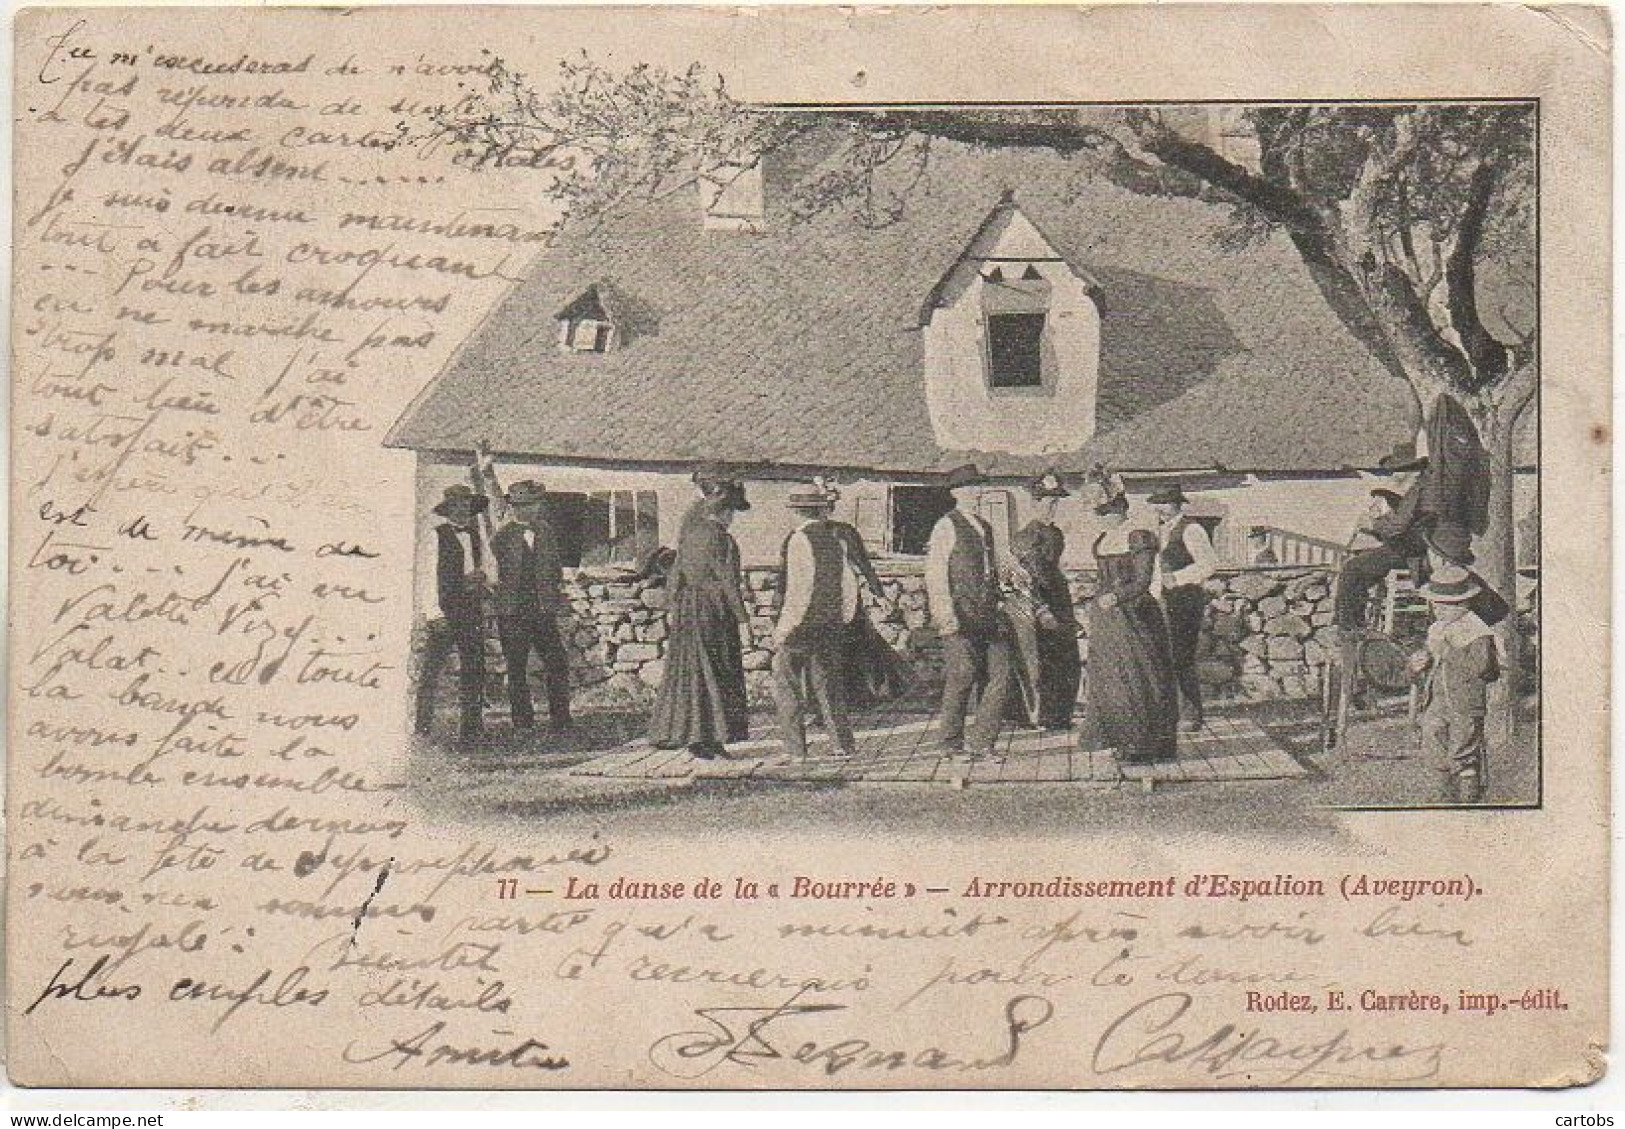 Tu m'excuseras de n'avoir
pas répondu de suite
a tes deux cartes Postales
j'étais absent......
je suis devenu maintenant
tout a fait croquant
... Pour les amours
ca ne marche pas
trop mal j'ai
tout lieu d'être
satisfait...
J'espère qu'il en
est de même de
toi.... J'ai vu
Valette Vizy...
Valat.. et toute
la bande nous
avons faite la
bombe ensemble
dimanche dernier
à la fête de
nous n'en sommes parté qu'a minuit après avoir bien
rigolé: Bientôt te reverrais pour te donner
plus amples détails
Amitié Fernand
11 — La danse de la « Bourrée » — Arrondissement d'Espalion (Aveyron).
Rodez, E. Carrère, imp.-édit.
cartobs